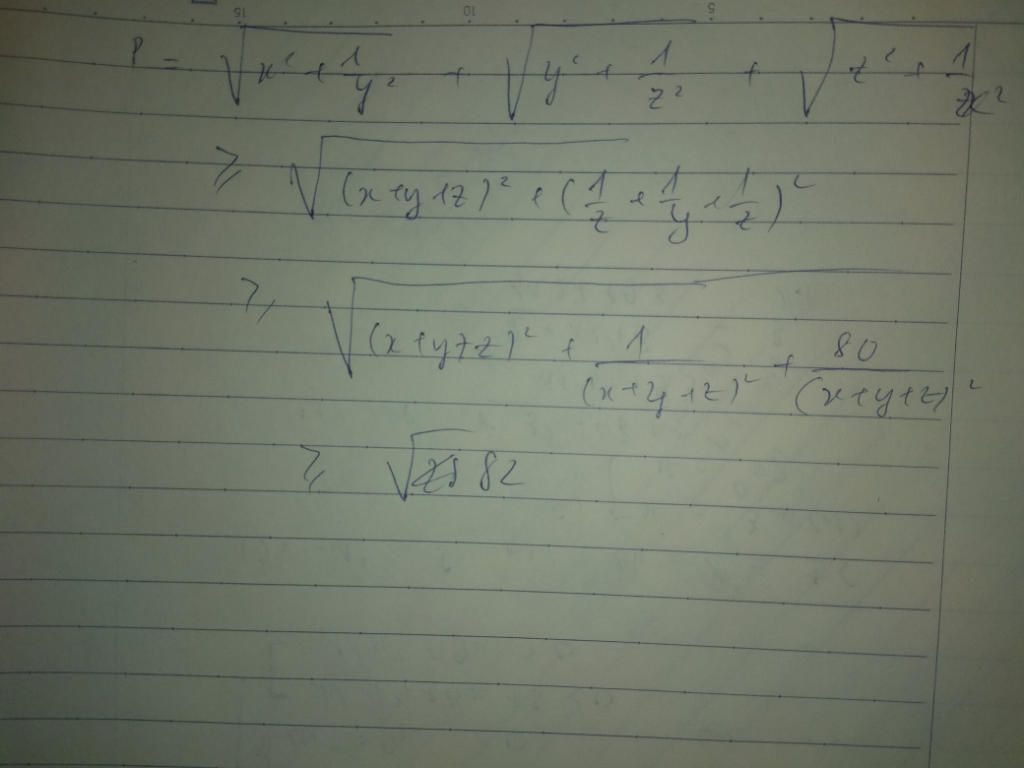 15 10 5
P = √(x² + 1/y²) + √(y² + 1/z²) + √(z² + 1/x²)
≥ √((x+y+z)² + (1/z + 1/y + 1/z)²)
≥ √((x+y+z)² + 1/(x+y+z)² + 80/(x+y+z)²)
≥ √82